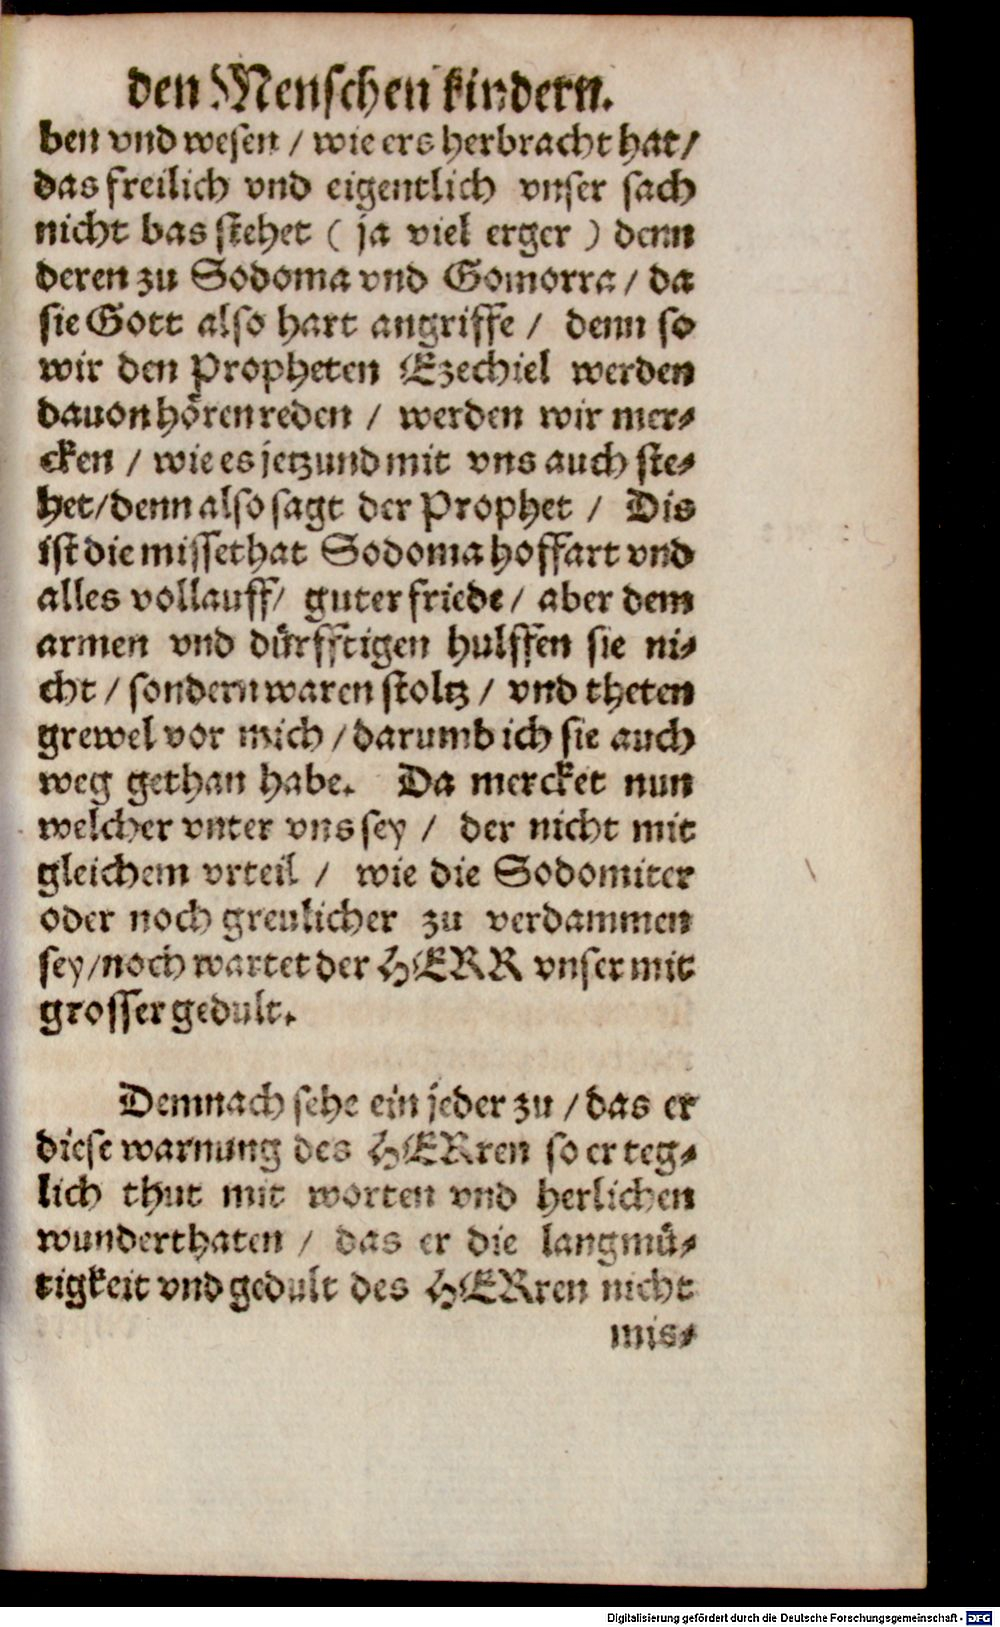 den Menschen kindern.
ben vnd wesen / wie ers herbracht hat /
das freilich vnd eigentlich vnser sach
nicht bas stehet ( ja viel erger ) denn
deren zu Sodoma vnd Gomorra / da
sie Gott also hart angriffe / denn so
wir den Propheten Ezechiel werden
dauon hören reden / werden wir mer-
cken / wie es jetzund mit vns auch ste-
het / denn also sagt der Prophet / Dis
ist die missethat Sodoma hoffart vnd
alles vollauff / guter friede / aber dem
armen vnd dürfftigen hulffen sie ni-
cht / sondern waren stoltz / vnd theten
grewel vor mich / darumb ich sie auch
weg gethan habe. Da mercket nun
welcher vnter vns sey / der nicht mit
gleichem vrteil / wie die Sodomiter
oder noch greulicher zu verdammen
sey / noch wartet der HERR vnser mit
grosser gedult.
Demnach sehe ein jeder zu / das er
diese warnung des HERren so er teg-
lich thut mit worten vnd herlichen
wunderthaten / das er die langmü-
tigkeit vnd gedult des HERren nicht
mis-
Digitalisierung gefördert durch die Deutsche Forschungsgemeinschaft - DFG